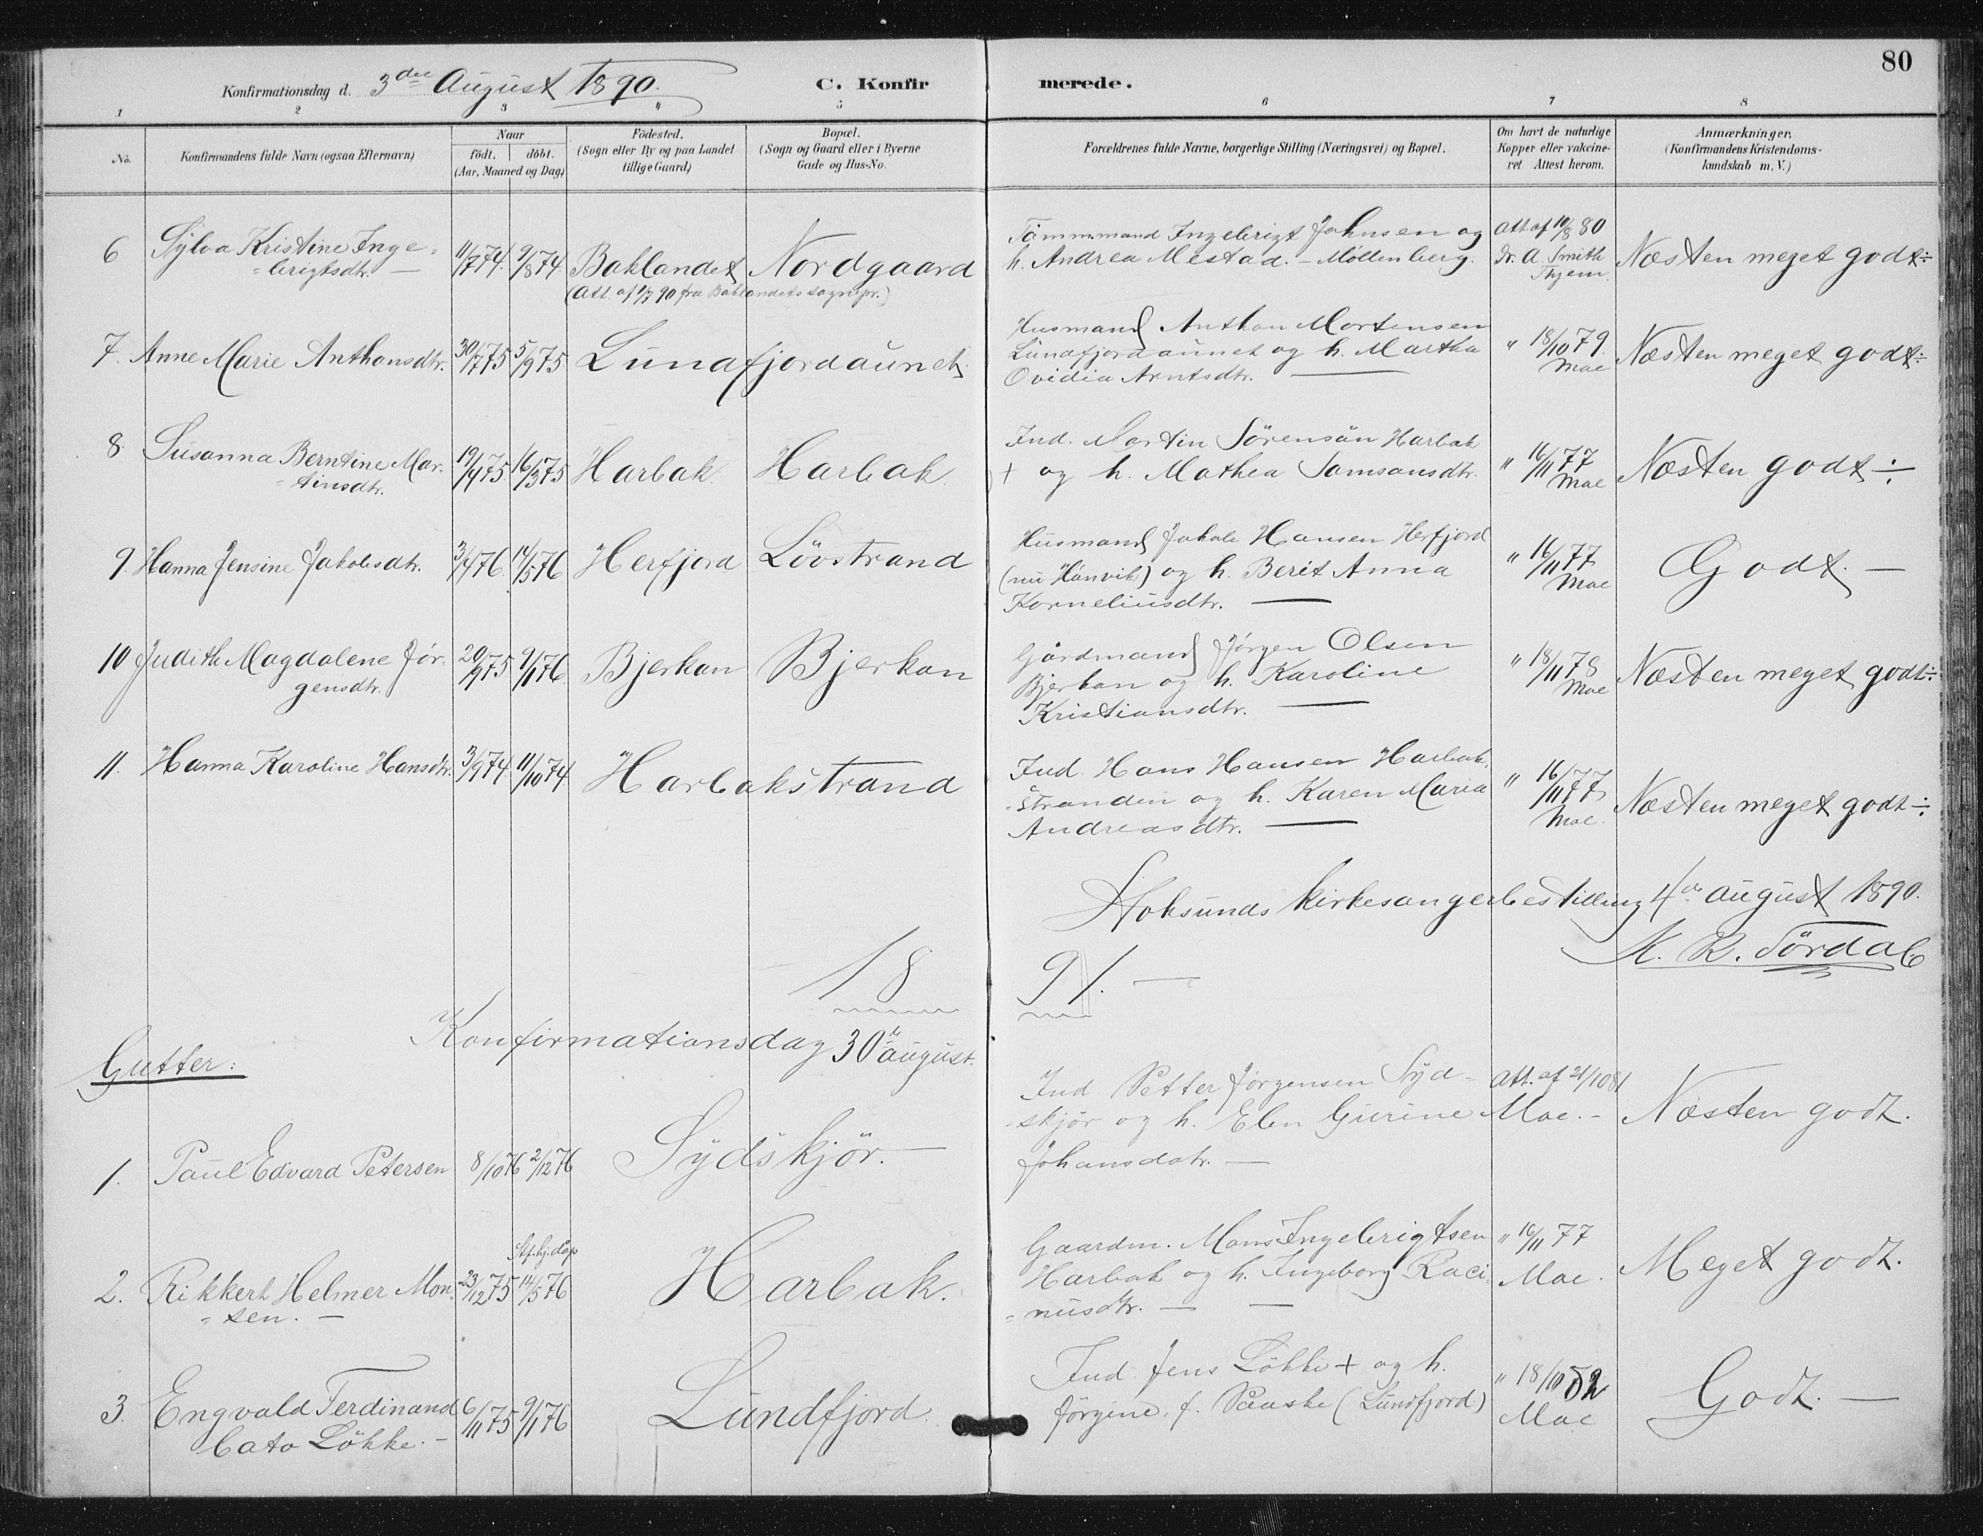 80
Konfirmationsdag d. 3die August 1890. C. Konfirmerede.
1 2 3 4 5 6 7 8
No. Konfirmandens fulde Navn (ogsaa Efternavn)
Naar
födt. döbt.
(Aar, Maaned og Dag)
Födested.
(Sogn eller By og paa Landet
tillige Gaard)
Bopæl.
(Sogn og Gaard eller i Byerne
Gade og Hus-No.
Forældrenes fulde Navne, borgerlige Stilling (Næringsvei) og Bopæl.
Om havt de naturlige
Kopper eller vakcine-
ret. Attest herom.
Anmærkninger.
(Konfirmandens Kristendoms-
kundskab m. V.)
6 Sylva Kristine Inge-
brigtsdtr. —
11/7 74. 9/8 74 Baklandet Nordgaard
(Att. af 1/7 90 fra Baklandets sognepr.)
Tömmermand Ingebrigt Johnsen og
h. Andrea Mestad. - Möllenberg.
Att af 10/8 80
dr. A. Smith
Thjem.
Næsten meget godt ÷
7. Anne Marie Anthonsdtr. 30/7 75 5/9 75 Lundfjordaunet.
Husmand Anthon Mortensen
Lundfjordaunet og h. Martha
Ovidia Arntsdtr. —
" 18/10 79.
Moe
Næsten meget godt ÷
8 Susanna Berntine Mar-
tinsdtr.
19/1 75 16/5 75 Harbak. Harbak.
Ind. Martin Sörensön Harbak
+ og h. Mathea Samsonsdtr.
" 16/11 77
Moe
Næsten godt ÷
9. Hanna Jensine Jakobsdtr. 3/4 76. 14/5 76. Herfjord Lövstrand
Husmand Jakob Hansen Herfjord
(nu Hanvik) og h. Berit Anna
Korneliusdtr. —
" 16/11 77
Moe
Godt. —
10 Judith Magdalene Jör-
gensdtr.
20/9 75 9/1 76 Bjerkan Bjerkan
Gårdmand Jørgen Olsen
Bjerkan og h. Karoline
Kristiansdtr. —
" 18/11 78
Moe
Næsten meget godt ÷
11. Hanna Karoline Hansdtr. 3/9 74. 11/10 74 Harbakstrand
Ind. Hans Hansen Harbak-
stranden og h. Karen Maria
Andreasdtr. —
" 16/11 77
Moe.
Næsten meget godt ÷
Stoksunds kirkesangerbestilling 4de august 1890.
K. R. Sördal
18 91. —
Konfirmationsdag 30te august.
Gutter:
1. Paul Edvard Petersen 8/10 76 2/12 76 Sydskjör. —
Ind Petter Jörgensen Syd-
skjör og h. Elen Gurine
Johansdatr. —
Att. af 21/10 81
Moe. -
Næsten godt.
2. Rikkert Helmer Mon-
sen. —
23/12 75 Stf. hj.døp 14/5 76 Harbak.
Gaardm. Mons Ingebrigtsen
Harbak og h. Ingeborg Raci-
nusdtr. — —
" 16/11 77
Moe.
Meget godt.
3. Engvald Ferdinand
Cato Lökke. -
6/11 75 9/1 76 Lundfjord.
Ind. Jens Lökke + og h.
Jörgine f. Paaske (Lundfjord)
" 18/10 82
Moe
Godt. —